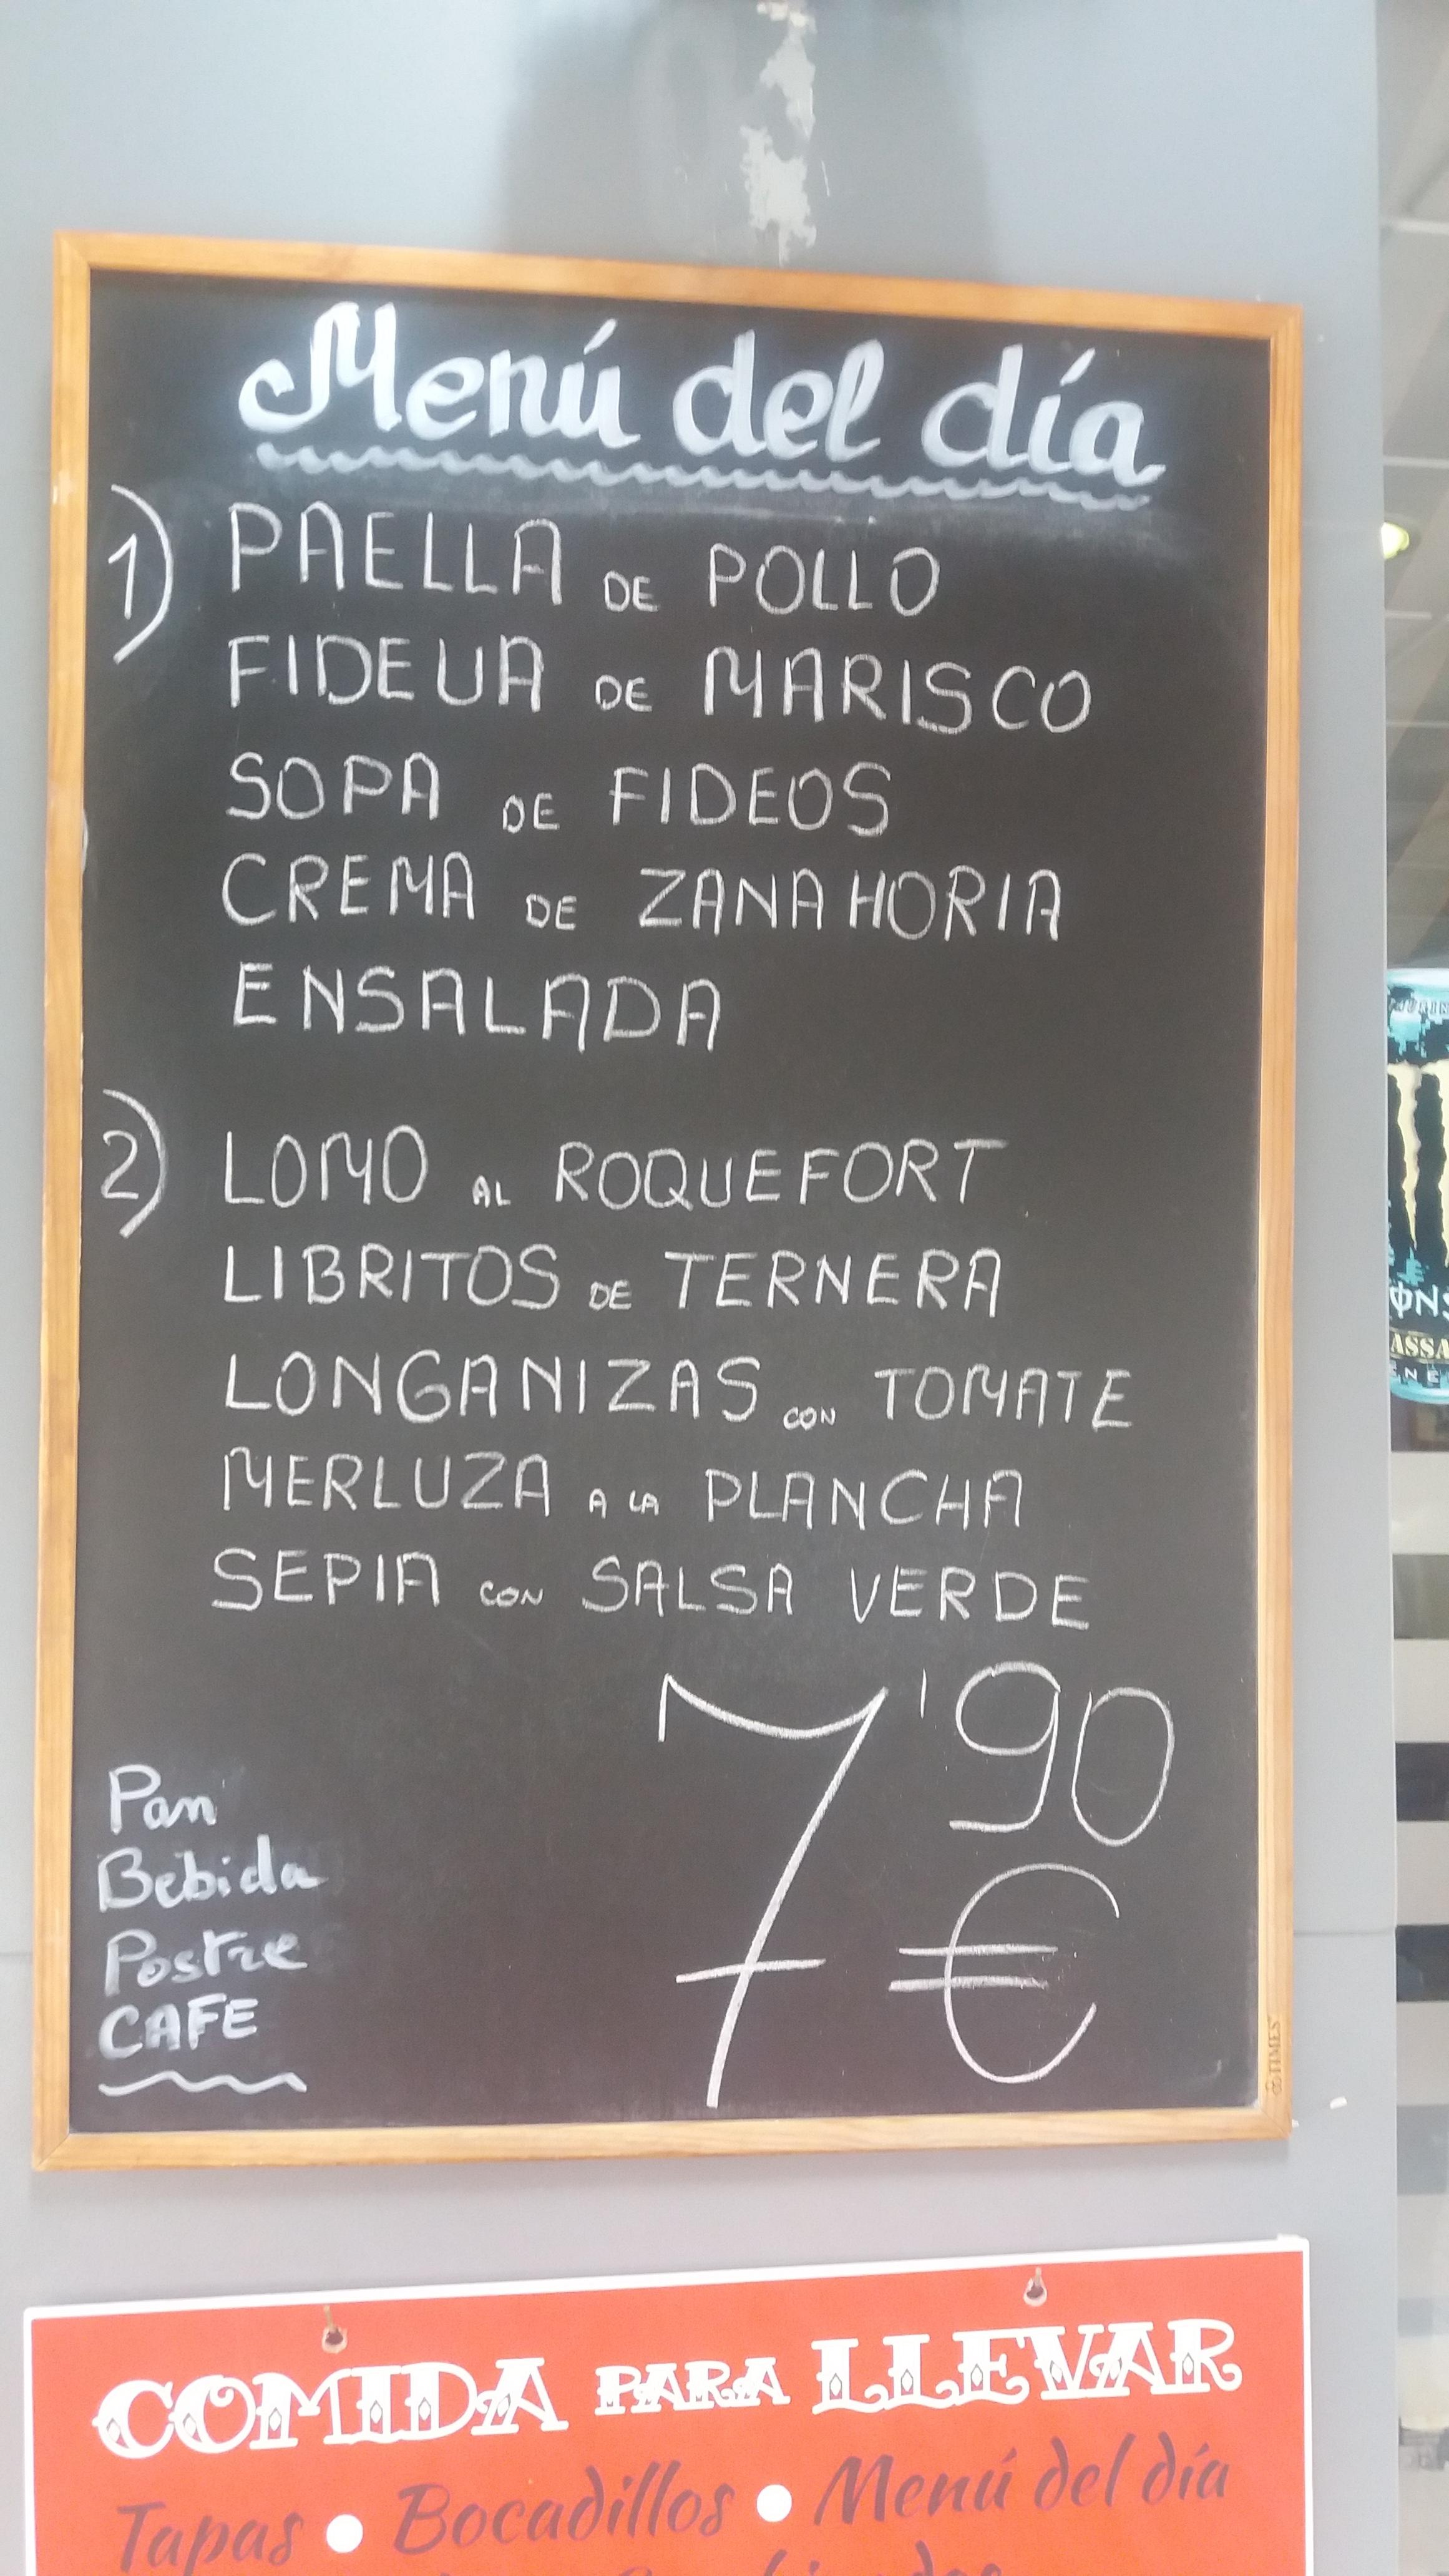 Menú del día
1) PAELLA DE POLLO
FIDEUA DE MARISCO
SOPA DE FIDEOS
CREMA DE ZANAHORIA
ENSALADA
2) LOMO AL ROQUEFORT
LIBRITOS DE TERNERA
LONGANIZAS CON TOMATE
MERLUZA A LA PLANCHA
SEPIA CON SALSA VERDE
7'90 €
Pan
Bebida
Postre
CAFE
TIMES
COMIDA PARA LLEVAR
Tapas • Bocadillos • Menú del día